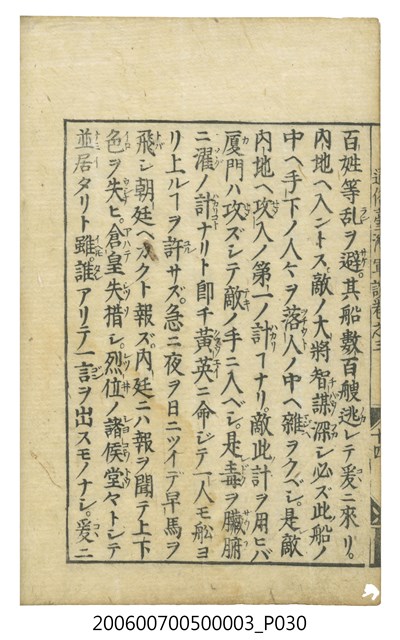 百姓等乱ヲ避。其船數百艘逃レテ爰ニ來リ。
内地ヘ入ントス敵ノ大將智謀深シ必ズ此船ノ
中ヘ手下ノ人々ヲ落人ノ中ヘ雜ヲクベシ。是敵
内地ヘ攻入ノ第一ノ計ヿナリ。敵此計ヲ用ヒバ
厦門ハ攻ズシテ敵ノ手ニ入ベシ。是毒ヲ臟腑
ニ濯ノ計ナリト即チ黃英ニ命シテ一人モ舩ヨ
リ上ルヿヲ許サズ。急ニ夜ヲ日ニツイデ早馬ヲ
飛シ朝廷ヘカクト報ズ。内廷ニハ報ヲ聞テ上下
色ヲ失ヒ。倉皇失措シ。烈位ノ諸侯堂々トシテ
並居タリト雖。誰アリテ一言ヲ出スモノナシ。爰ニ
200600700500003_P030